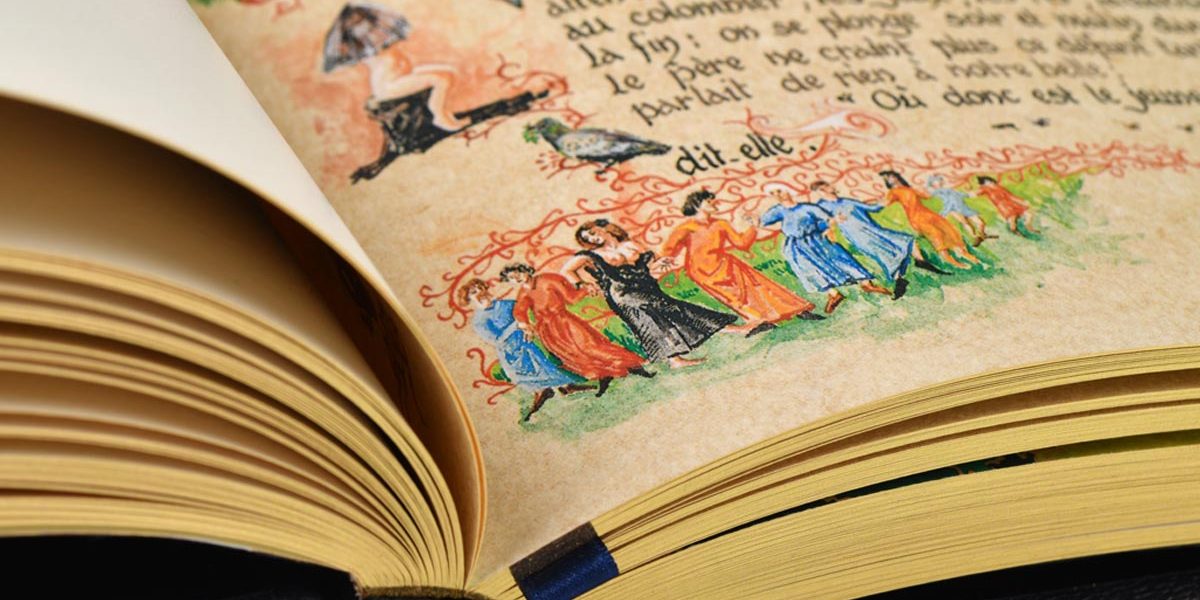 au colombier
la fin : on se plonge soir et matin dans
le père ne craint plus ce départ
parlait de rien à notre belle.
« Où donc est le jeune
dit-elle.